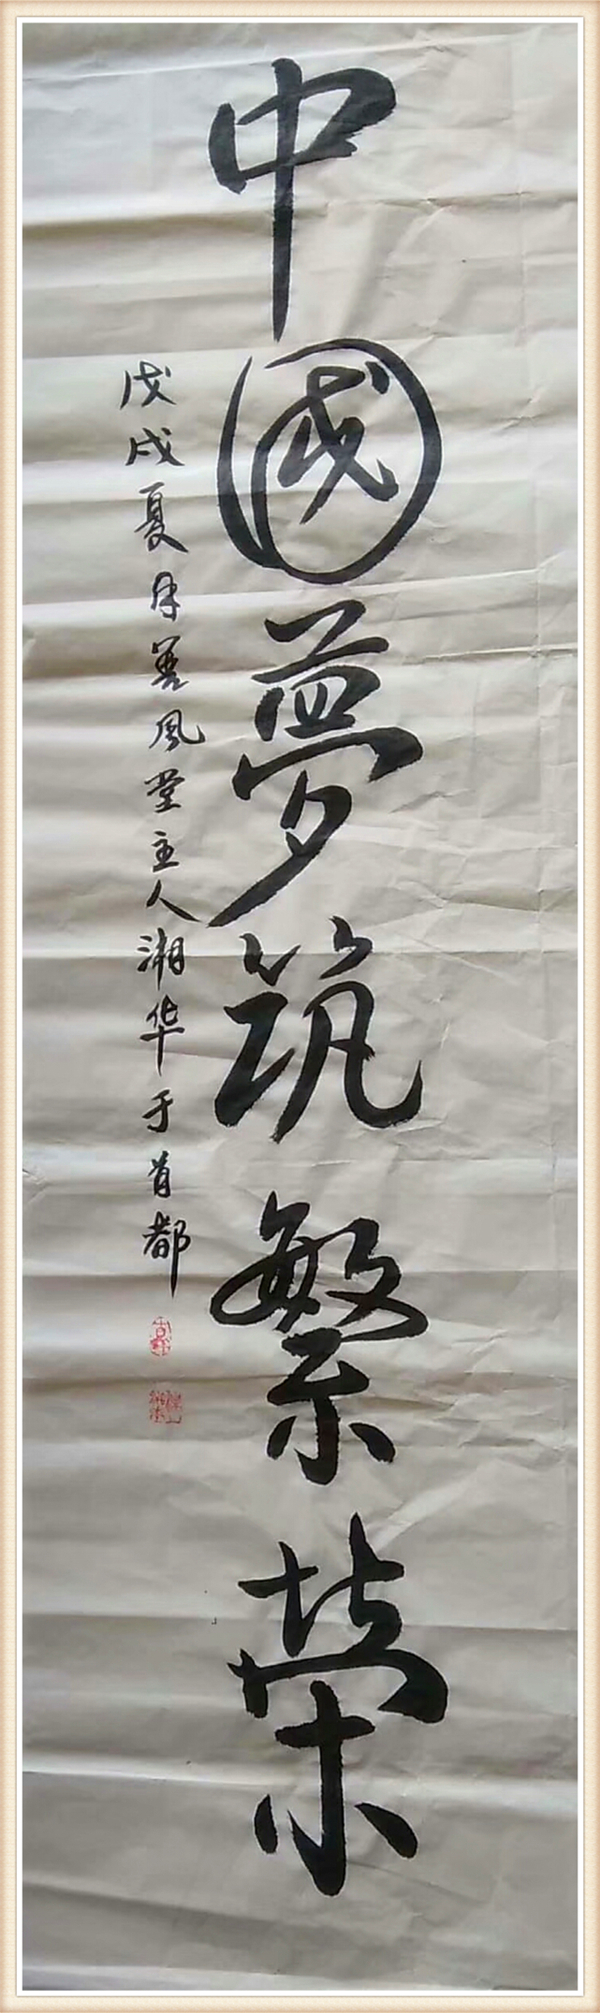 中國夢筑繁荣
戊戌夏月善风堂主人湘华于首都